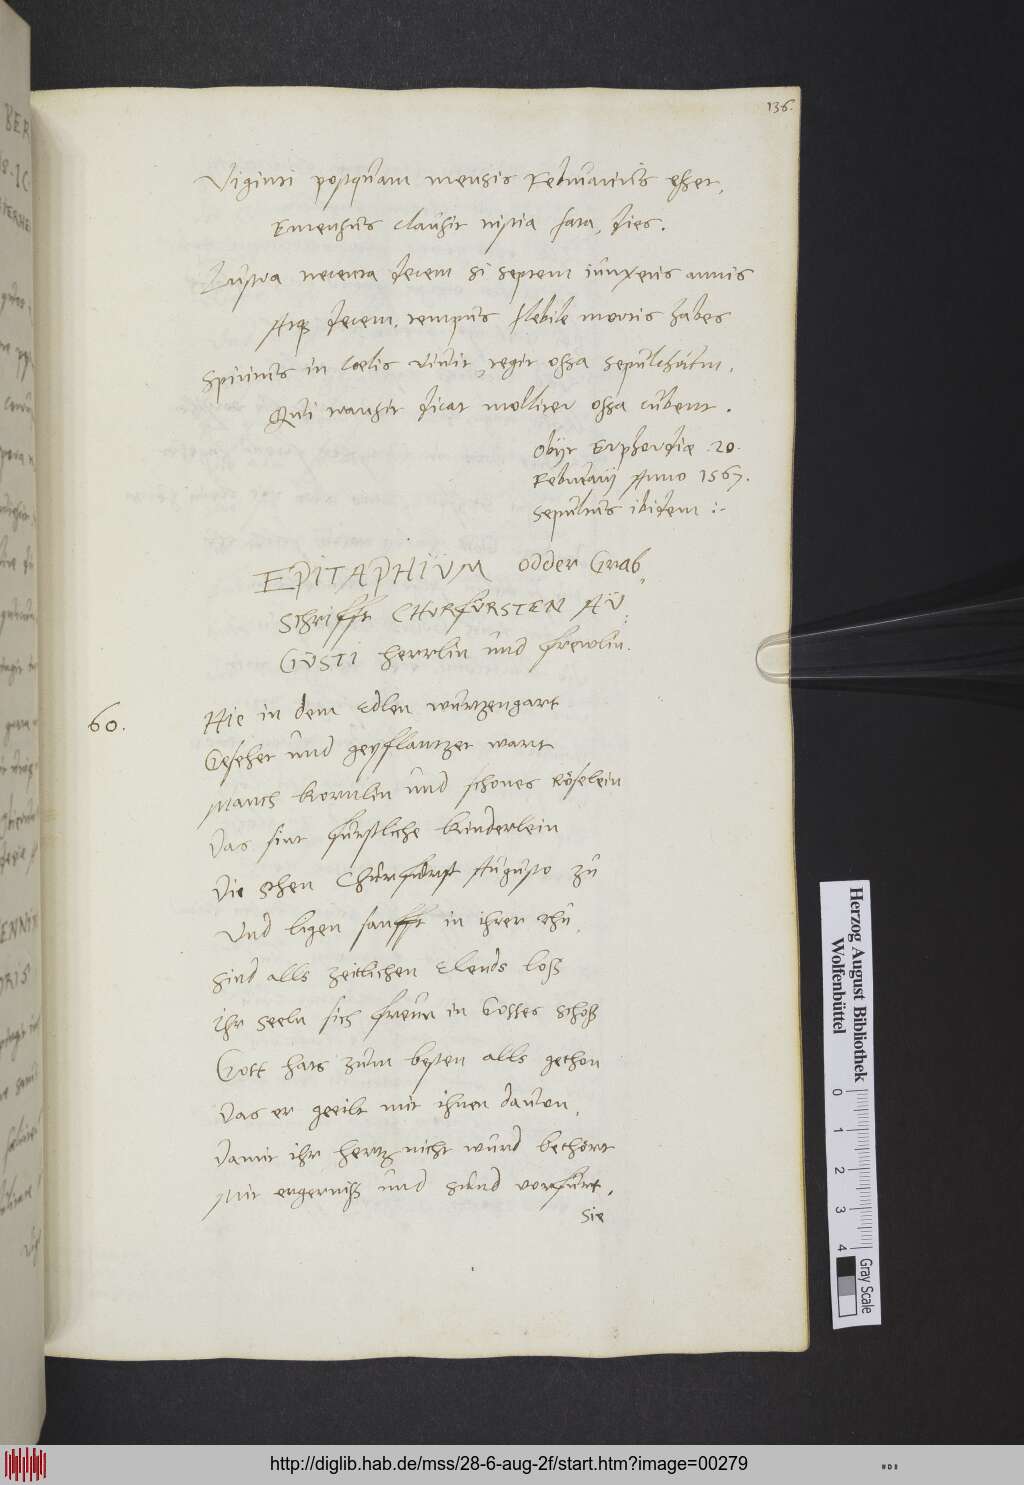 136.
Viginti postquam mensis Februarius esset,
Emensus clausit tristia fata, dies.
Lustra peracta decem si septem iunxeris annis
Atq; decem, tempus flebile mortis habes
Spiritus in Coelis vivit, tegit ossa sepulchrum,
Qui transit dicat molliter ossa cubent.
Obijt Erphordiæ 20.
Februarij Anno 1567.
Sepultus ibidem :-
EPITAPHIUM odder Grab,,
Schrifft CHURFÜRSTEN AU:
GUSTI herrlin und frewlin.
60.
Hie in dem Edlen wurtzengart
Gesehet und gepflantzet wart
Manch kornlin und schones Röselein
Das sint fürstliche kinderlein
Die gehen Churfürst Augusto zu
Und ligen sanfft in ihrer rhu,
Sind alls zeitlichen Elends loß
Ihr seeln sich freun in Gottes schoß
Gott hats zum besten alls gethon
Das er geeilt mit ihnen davon,
Damit ihr hertz nicht wurd bethört
Mit ergerniß und sünd vorfürt,
Sie
Herzog August Bibliothek
Wolfenbüttel
0 1 2 3 4
Gray Scale
http://diglib.hab.de/mss/28-6-aug-2f/start.htm?image=00279